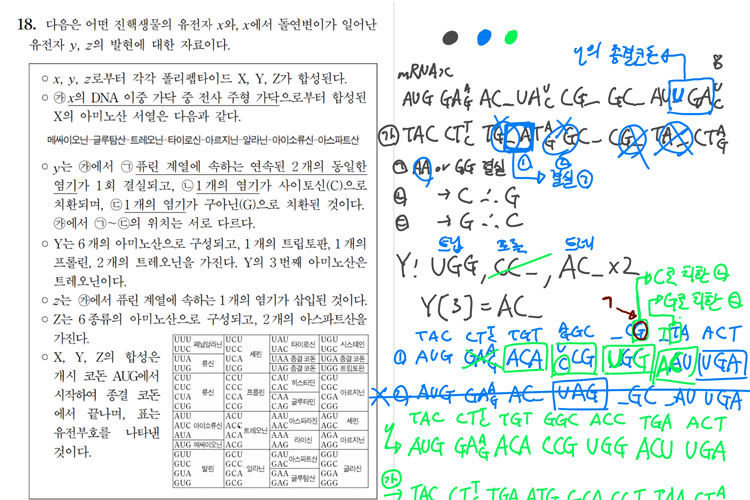 18. 다음은 어떤 진핵생물의 유전자 x와, x에서 돌연변이가 일어난
유전자 y, z의 발현에 대한 자료이다.
○ x, y, z로부터 각각 폴리펩타이드 X, Y, Z가 합성된다.
○ ㉮x의 DNA 이중 가닥 중 전사 주형 가닥으로부터 합성된
X의 아미노산 서열은 다음과 같다.
메싸이오닌-글루탐산-트레오닌-타이로신-아르지닌-알라닌-아이소류신-아스파트산
○ y는 ㉮에서 ㉠퓨린 계열에 속하는 연속된 2개의 동일한
염기가 1회 결실되고, ㉡1개의 염기가 사이토신(C)으로
치환되며, ㉢1개의 염기가 구아닌(G)으로 치환된 것이다.
㉮에서 ㉠~㉢의 위치는 서로 다르다.
○ Y는 6개의 아미노산으로 구성되고, 1개의 트립토판, 1개의
프롤린, 2개의 트레오닌을 가진다. Y의 3번째 아미노산은
트레오닌이다.
○ z는 ㉮에서 퓨린 계열에 속하는 1개의 염기가 삽입된 것이다.
○ Z는 6종류의 아미노산으로 구성되고, 2개의 아스파트산을
가진다.
○ X, Y, Z의 합성은
개시 코돈 AUG에서
시작하여 종결 코돈
에서 끝나며, 표는
유전부호를 나타낸
것이다.
UUU UUC 페닐알라닌 UCU UCC UCA UCG 세린 UAU UAC 타이로신 UGU UGC 시스테인
UUA UUG 류신 UAA 종결 코돈 UAG 종결 코돈 UGA 종결 코돈 UGG 트립토판
CUU CUC CUA CUG 류신 CCU CCC CCA CCG 프롤린 CAU CAC 히스티딘 CAA CAG 글루타민 CGU CGC CGA CGG 아르지닌
AUU AUC AUA 아이소류신 ACU ACC ACA ACG 트레오닌 AAU AAC 아스파라진 AGU AGC 세린
AUG 메싸이오닌 AAA AAG 라이신 AGA AGG 아르지닌
GUU GUC GUA GUG 발린 GCU GCC GCA GCG 알라닌 GAU GAC 아스파트산 GAA GAG 글루탐산 GGU GGC GGA GGG 글리신
y의 종결코돈 8
mRNA x
AUG GA A/G AC_ UA U/C CG_ GC_ AU U GA U/C
㉮ TAC CT T/C TG_ AT A/G GC_ CG_ TA_ CT A/G
㉠ AA or GG 결실 ① ② 결실 ㉠
㉡ → C ∴ G
㉢ → G ∴ C
트립 프롤 트레
Y: UGG, CC_, AC_ ×2
Y[3] = AC_
C로 치환 ㉡
G로 치환 ㉢
TAC CT T/C TGT GGC _CG TA ACT
① AUG GA ACA CCG UGC AU UGA
② AUG GA A/G AC_ UAG _GC _AU UGA
TAC CT T/C TGT GGC ACC TGA ACT
y AUG GA A/G ACA CCG UGG ACU UGA
㉮